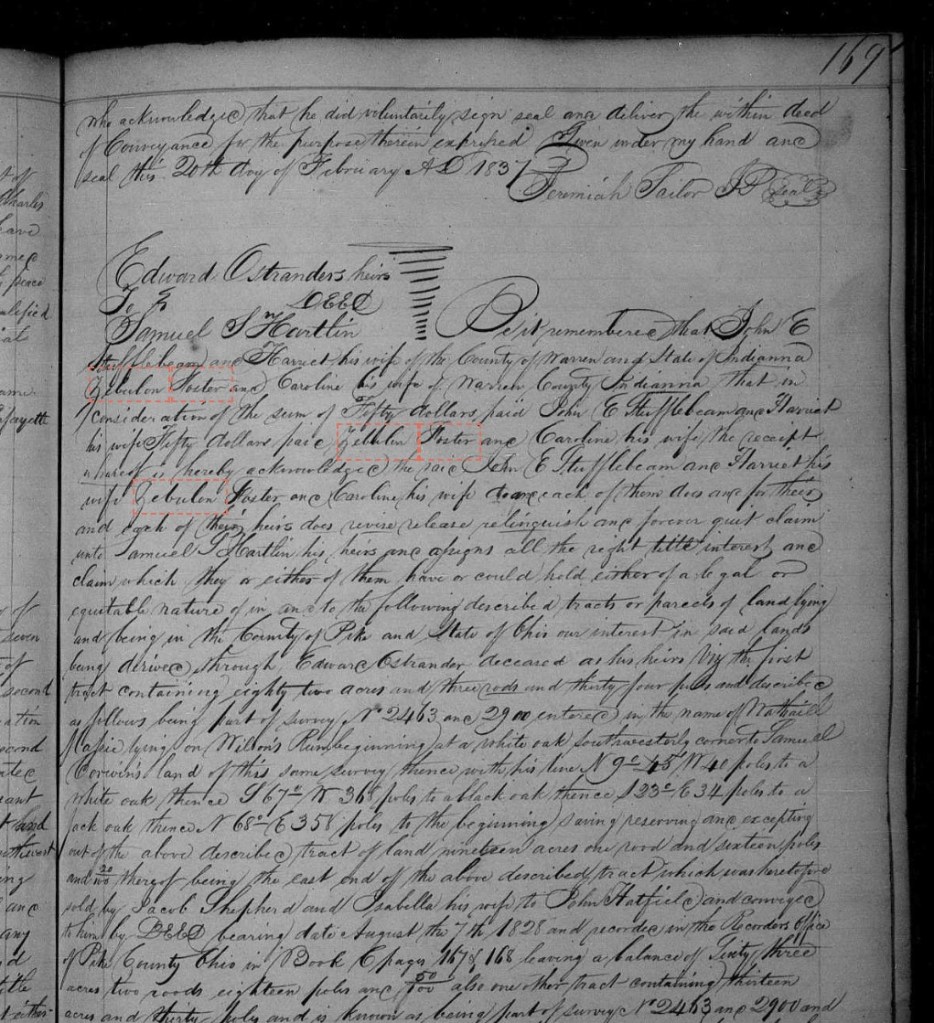 169
who acknowledged that he did voluntarily sign seal and deliver the within deed
of Conveyance for the purpose therein expressed Given under my hand and
seal this 20th day of February AD 1837
Jeremiah Tailor JP seal
Edward Ostranders heirs
To DEED
Samuel S Hartlin
Be it remembered that John E
Stufflebeam and Harriet his wife of the County of Warren and State of Indianna
Zebulon Foster and Caroline his wife of Warren County Indianna that in
consideration of the sum of Fifty dollars paid John E Stufflebeam and Harriet
his wife Fifty dollars paid Zebulon Foster and Caroline his wife the receipt
whereof is hereby acknowledged the said John E Stufflebeam and Harriet his
wife Zebulon Foster and Caroline his wife do and each of them does and for theirs
and each of their heirs does revise release relinquish and forever quit claim
unto Samuel S Hartlin his heirs and assigns all the right title interest and
claim which they or either of them have or could hold either of a legal or
equitable nature of in and to the following described tracts or parcels of land lying
and being in the County of Pike and State of Ohio our interest in said lands
being derived through Edward Ostrander deceased as his heirs Viz the first
tract containing eighty two acres and three rods and thirty four poles and described
as follows being part of survey No 2463 and 2900 entered in the name of Nathaiell
Massie lying on Wilson's Run beginning at a white oak southwesterly corner to Samuel
Corwin's land of this same survey thence with his line N 9° 45' W 40 poles to a
white oak thence S 67° W 368 poles to a black oak thence S 23° E 34 poles to a
jack oak thence N 68° E 358 poles to the beginning saving reserving and excepting
out of the above described tract of land nineteen acres one rood and sixteen poles
and 20/100 thereof being the east end of the above described tract which was heretofore
sold by Jacob Shepherd and Isabella his wife to John Hatfield and conveyed
to him by DEED bearing date August the 7th 1828 and recorded in the Recorders Office
of Pike County Ohio in Book C pages 167 & 168 leaving a balance of Sixty three
acres two roods eighteen poles and 50/100 also one other tract containing thirteen
acres and thirty poles and is known as being part of survey No 2463 and 2900 and